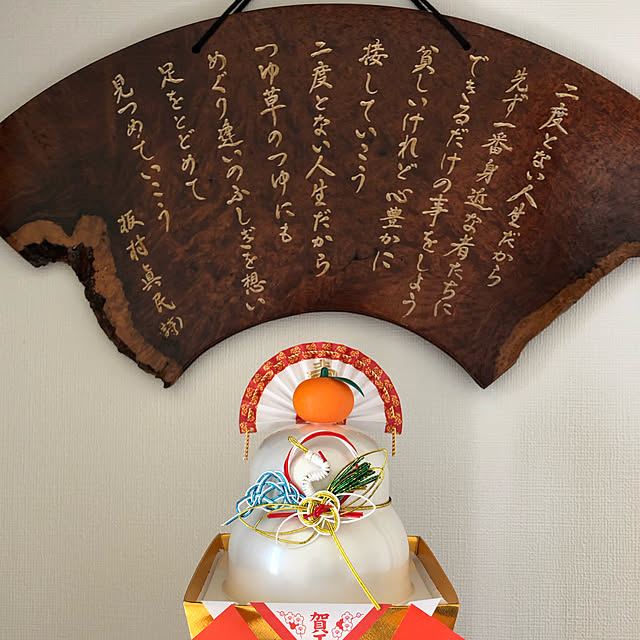 二度とない人生だから
先ず一番身近な者たちに
できるだけの事をしよう
貧しいけれど心豊かに
接していこう
二度とない人生だから
つゆ草のつゆにも
めぐり逢いのふしぎを想い
足をとどめて
見つめていこう
坂村眞民詩
賀正